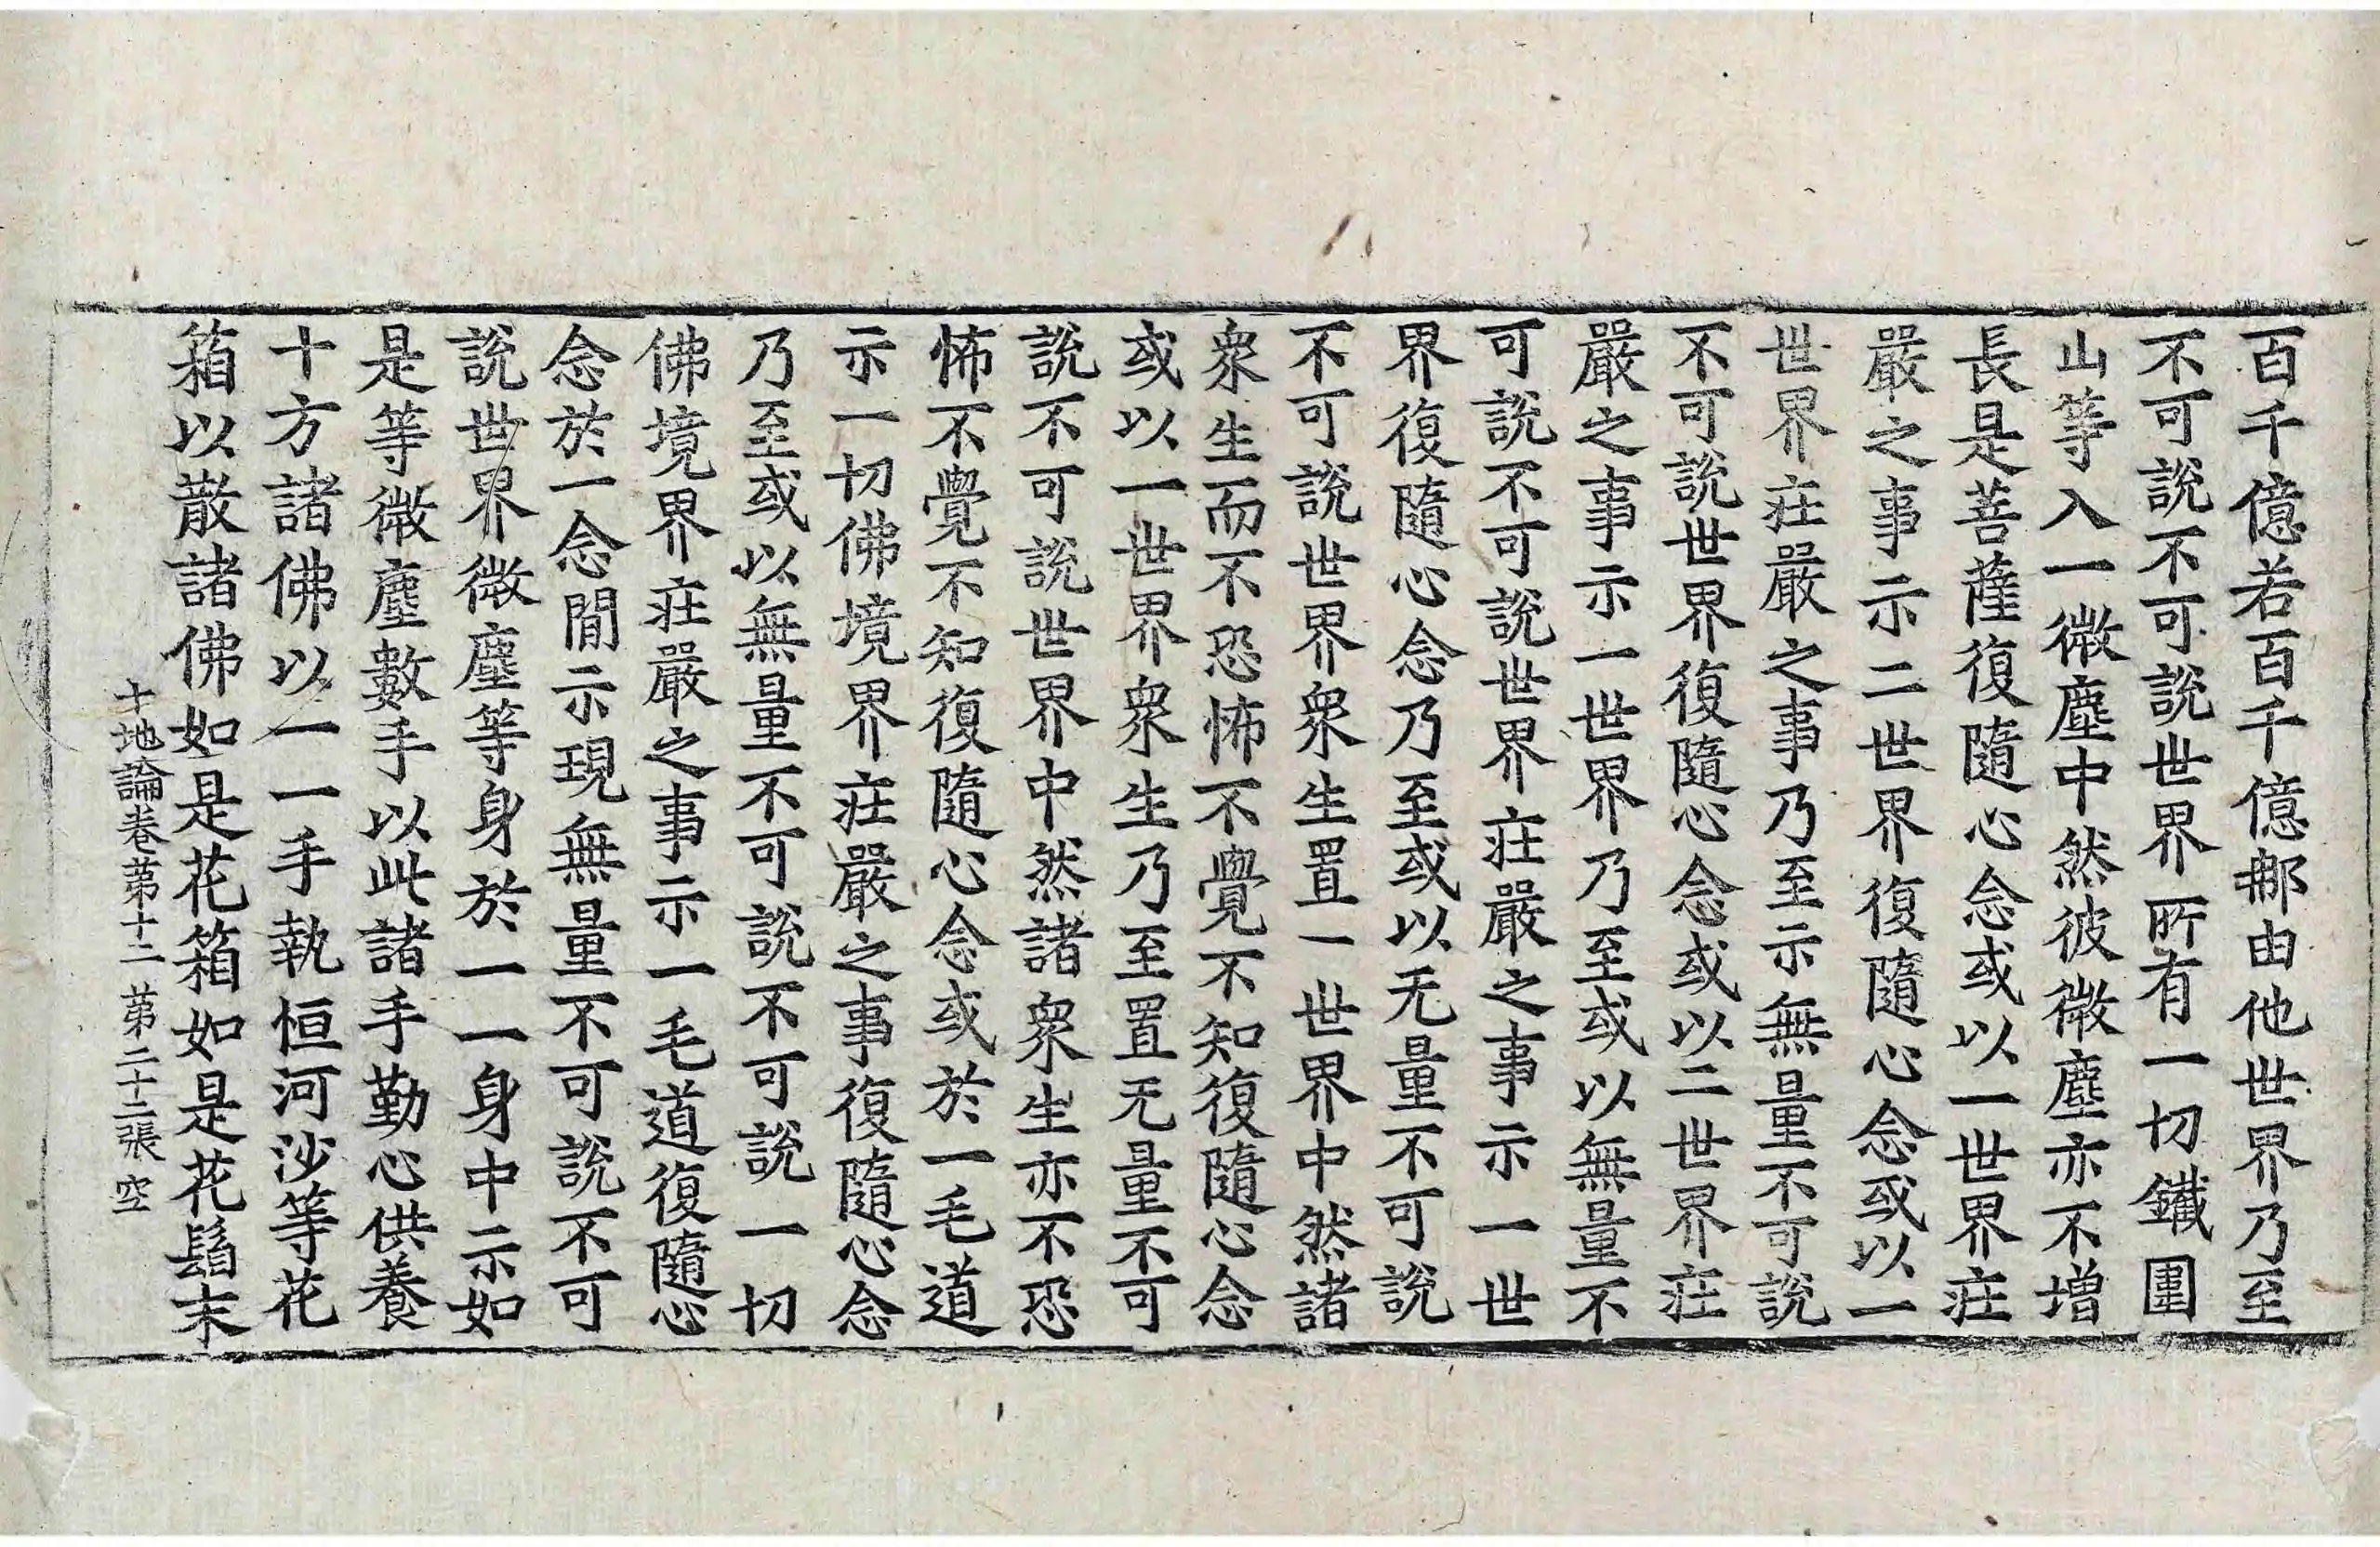 百千億若百千億那由他世界乃至
不可說不可說世界所有一切鐵圍
山等入一微塵中然彼微塵亦不增
長是菩薩復隨心念或以一世界莊
嚴之事示二世界復隨心念或以一
世界莊嚴之事乃至示無量不可說
不可說世界復隨心念或以二世界莊
嚴之事示一世界乃至或以無量不
可說不可說世界莊嚴之事示一世
界復隨心念乃至或以无量不可說
不可說世界衆生置一世界中然諸
衆生而不恐怖不覺不知復隨心念
或以一世界衆生乃至置无量不可
說不可說世界中然諸衆生亦不恐
怖不覺不知復隨心念或於一毛道
示一切佛境界莊嚴之事復隨心念
乃至或以無量不可說不可說一切
佛境界莊嚴之事示一毛道復隨心
念於一念間示現無量不可說不可
說世界微塵等身於一一身中示如
是等微塵數手以此諸手勤心供養
十方諸佛以一一手執恒河沙等花
箱以散諸佛如是花箱如是花鬘末
十地論卷第十二 第二十二張 空